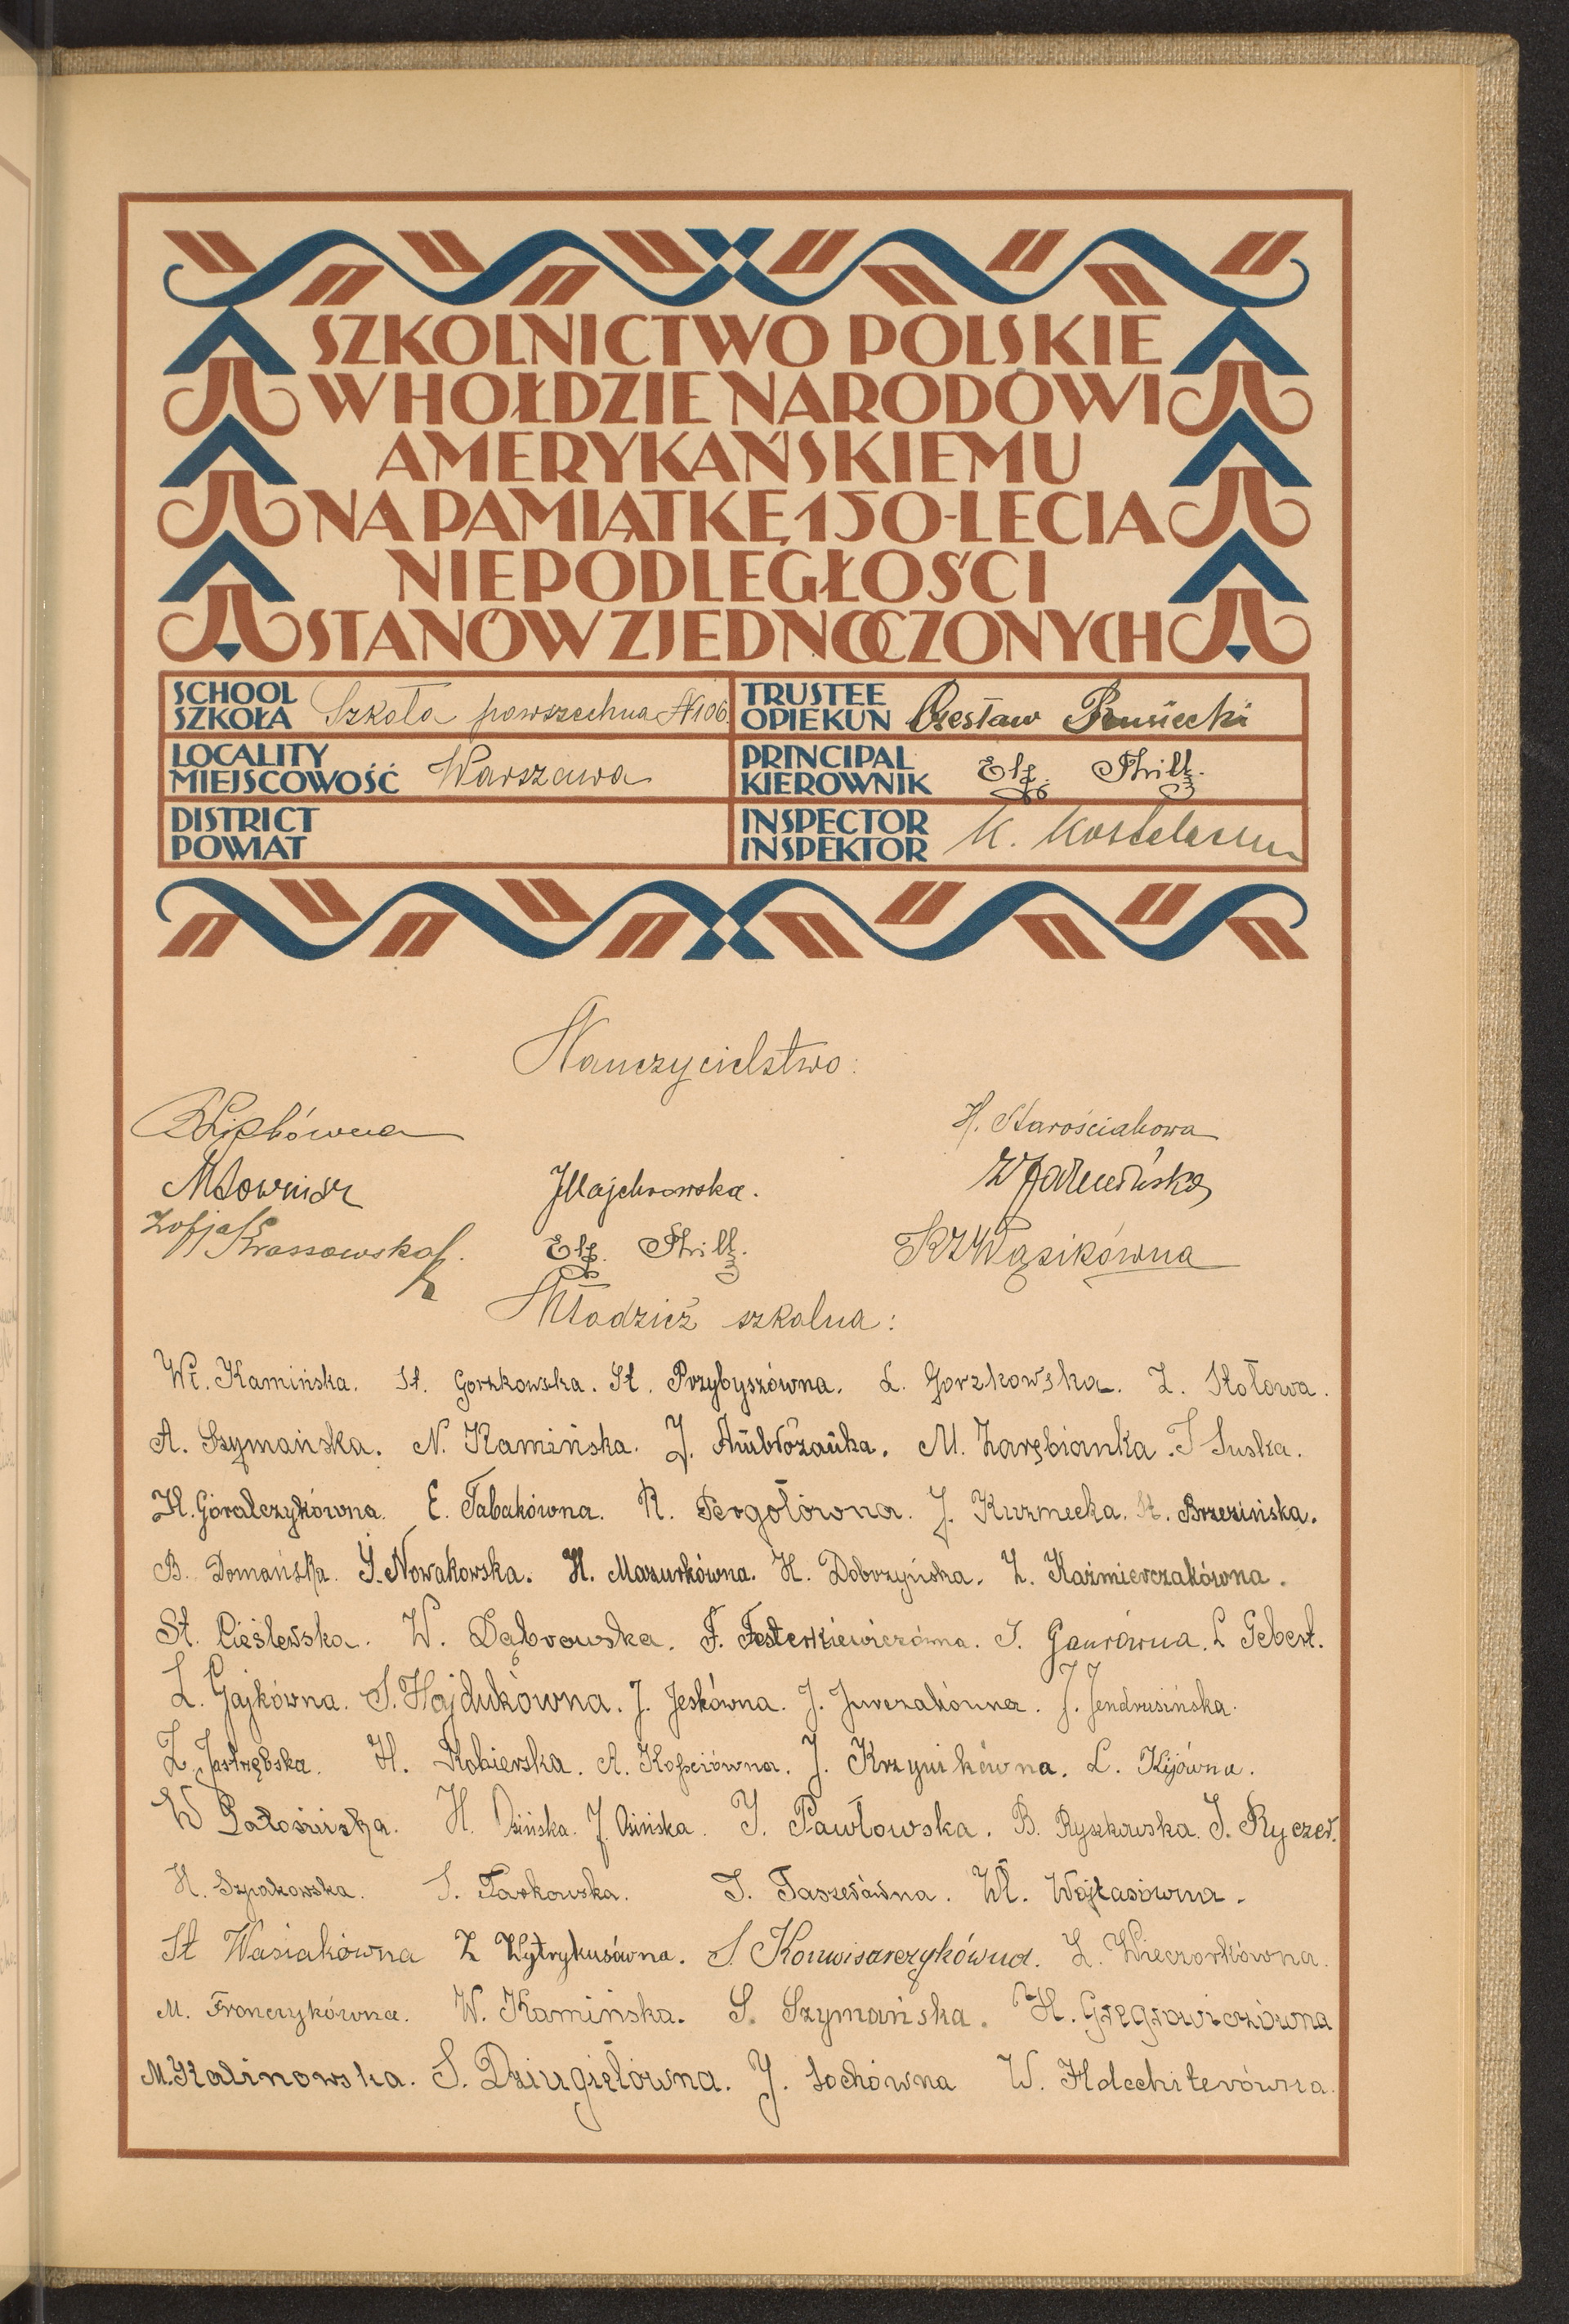 SZKOLNICTWO POLSKIE
W HOŁDZIE NARODOWI
AMERYKAŃSKIEMU
NA PAMIĄTKĘ 150-LECIA
NIEPODLEGŁOŚCI
STANÓW ZJEDNOCZONYCH
SCHOOL
SZKOŁA Szkoła powszechna N 106.
TRUSTEE
OPIEKUN Czesław
LOCALITY
MIEJSCOWOŚĆ Warszawa
PRINCIPAL
KIEROWNIK Elż.
DISTRICT
POWIAT
INSPECTOR
INSPEKTOR K.
Nauczycielstwo:
H. Starościakowa
JMajchrowska.
Zofja Krassowska
Elż. KZWąsikówna
Młodzież szkolna:
Wł. Kamińska. St. Gorzkowska. St. Przybyszówna. L. Gorzkowska. Z. Stołowa.
A. Szymańska. N. Kamińska. J. M. Zarębianka. J Suska.
H. Góralczykówna. E. Tabakówna. R. Pergołówna. J. Kurmecka. St. Brzezińska.
B. Domańska. J. Nowakowska. H. Mazurkówna. H. Dobrzyńska. Z. Kaźmierczakówna.
St. Cieślewska. W. Dąbrowska. F. Festerkiewiczówna. J. Gaurówna. L Gebert.
L. Gajkówna. S. Hajdukówna. J. Jeskówna. J. Jurczakówna. J. Jendrusińska.
Z. Jastrzębska. H. Kobierska. A. J. L. Kijówna.
W H. Osińska. J. Osińska. J. Pawłowska. B. Ryszkowska. J. Ryczer.
H. Szpakowska. S. Tarkowska. J. Wł. Wojtasówna.
St Wasiakówna Z Wytrykusówna. S. Konwisarczykówna. Z. Wieczorkówna.
M. Fronczykówna. W. Kamińska. S. Szymańska. H. Gregrowiczówna
M. Kalinowska. S. Dziugiełówna. J. Sochówna W.